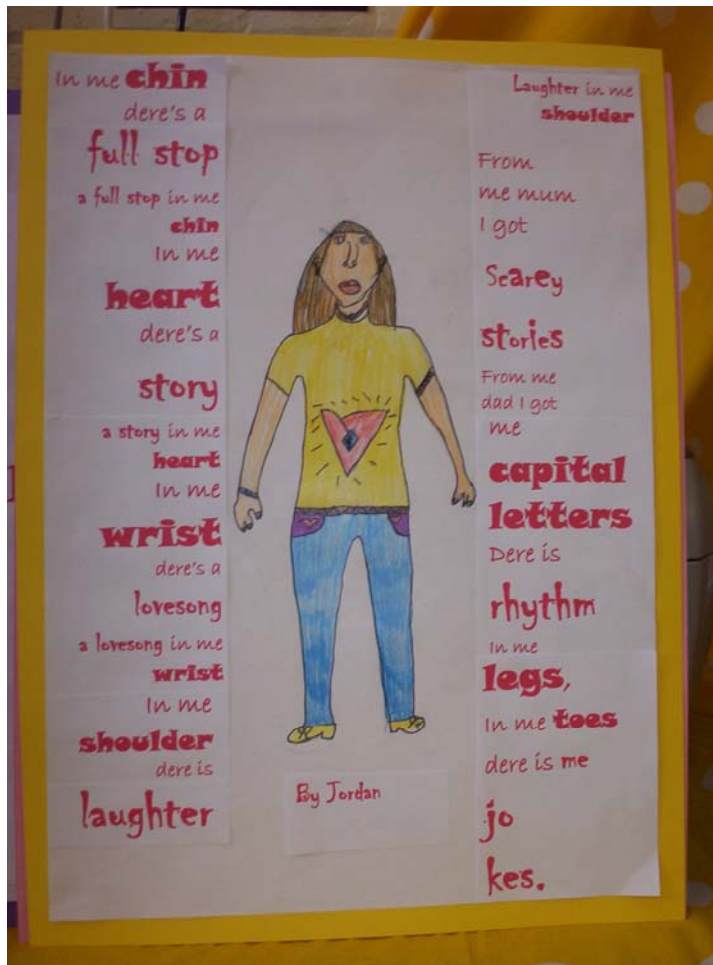 In me chin
dere's a
full stop
a full stop in me
chin
In me
heart
dere's a
story
a story in me
heart
In me
wrist
dere's a
lovesong
a lovesong in me
wrist
In me
shoulder
dere is
laughter
Laughter in me
shoulder
From
me mum
I got
Scarey
stories
From me
dad I got
me
capital
letters
Dere is
rhythm
In me
legs,
In me toes
dere is me
jo
kes.
By Jordan